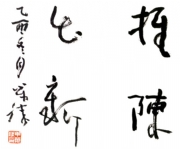 推陳
出新
乙酉冬月